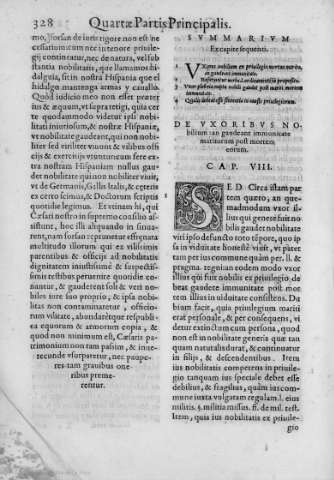 328 Quartæ Partis Principalis.
mo, forsan de iuris rigore non est ne
cessarium cum nec in tenore priuile
gij contineatur, nec de natura, vel sub
stantia nobilitatis, æque llamamos hi-
dalguia, sit in nostra Hispania que el
hidalgo mantenga armas y cauallo.
Quod iudicio meo non esset præter
ius & æquum, vt supra tetigi, quia cer
te quodammodo videtur ipsi nobi-
litati inimicum, & nostræ Hispaniæ,
vt nobilitate gaudeant, qui non nobili
ter sed viriliter viuunt & vilibus offi
cijs & exercitijs vtuntur, nec extra
nostram Hispaniam nullus gau-
det nobilitate qui non nobiliter viuit,
vt de Germanis, Gallis Italis, & cęteris
ex certo scimus, & Doctorum scriptis
quotidie legimus. Et vtinam hi, qui
Cæsari nostro in supremo consilio as-
sistunt, hoc illi aliquando in sinua-
rent, nam forsan supremam effunata
multitudo illorum qui ex vilissimis
parentibus & officijs ad nobilitatis
dignitatem iniustissimè & turpissimis
testibus peruenire quotidie co-
nantur, & gauderent soli & veri nobi-
les iure suo proprio, & ipsa nobili-
tas non contaminaretur, officio-
rum vilitate, abundaretque respubli-
ca equorum & armorum copia, &
quod non minimum est, Cæsaris pa-
trimonium non tam passim, & inte-
recunde vsurparetur, nec paupe-
res tam grauibus one
ribus preme-
rentur.
SVMMARIVM
Ex capite sequenti.
DE VXORIBVS NO-
bilium an gaudeant immunitate
maritorum post mortem
eorum.
CAP. VIII.
SED Circa istam par-
tem quæro, an que-
admodum vxor il-
lius qui genere fuit no-
bilis gaudet nobilitate
viri ipso defuncto toto tẽpore, quo ip
sa in viduitate honestè viuit, vt placet
tam per ius commune quàm per. ll. &
pragma. regni an eodem modo vxor
illius qui fuit nobilis ex priuilegio, de
beat gaudere immunitate post mor
tem illius in uiduitate consistens. Du
bium facit, quia priuilegium mariti
erat personale, & per consequens, vi
detur extinctum cum persona, quod
non est in nobilitate generis quæ tan
quam naturalis durat, & continuatur
in filijs, & descendentibus. Item
ius nobilitatis competens in priuile-
gio tanquam ius speciale debet esse
debilius, & fragilius, quàm ius com-
mune iuxta vulgatam regulam l. eius
militis. §. militia missus. ff. de mil. test.
Item, quia ius nobilitatis ex priuile-
gio